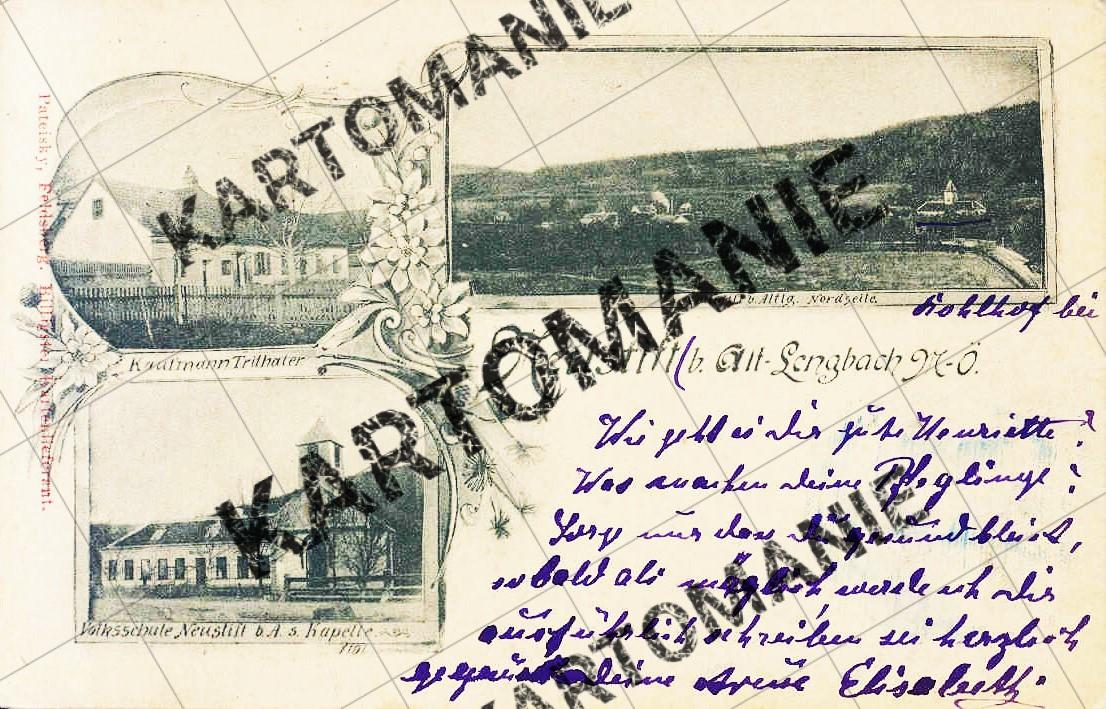 KARTOMANIE
KARTOMANIE
KARTOMANIE
KARTOMANIE
Pateisky, Feldsberg. Billigster Kartenlieferant.
Kaufmann Trithaler
b. Altlg. Nordseite.
Kohlhof bei
Neustift b. Alt-Lengbach N-Ö.
Volksschule Neustift b. A. s. Kapelle
Wie geht es dir gute Henriette?
Was machen deine Pfleglinge?
Sorge nur das Du gesund bleibst,
sobald als möglich werde ich dir
ausführlich schreiben sei herzlich
gegrüßt deine treue Elisabeth